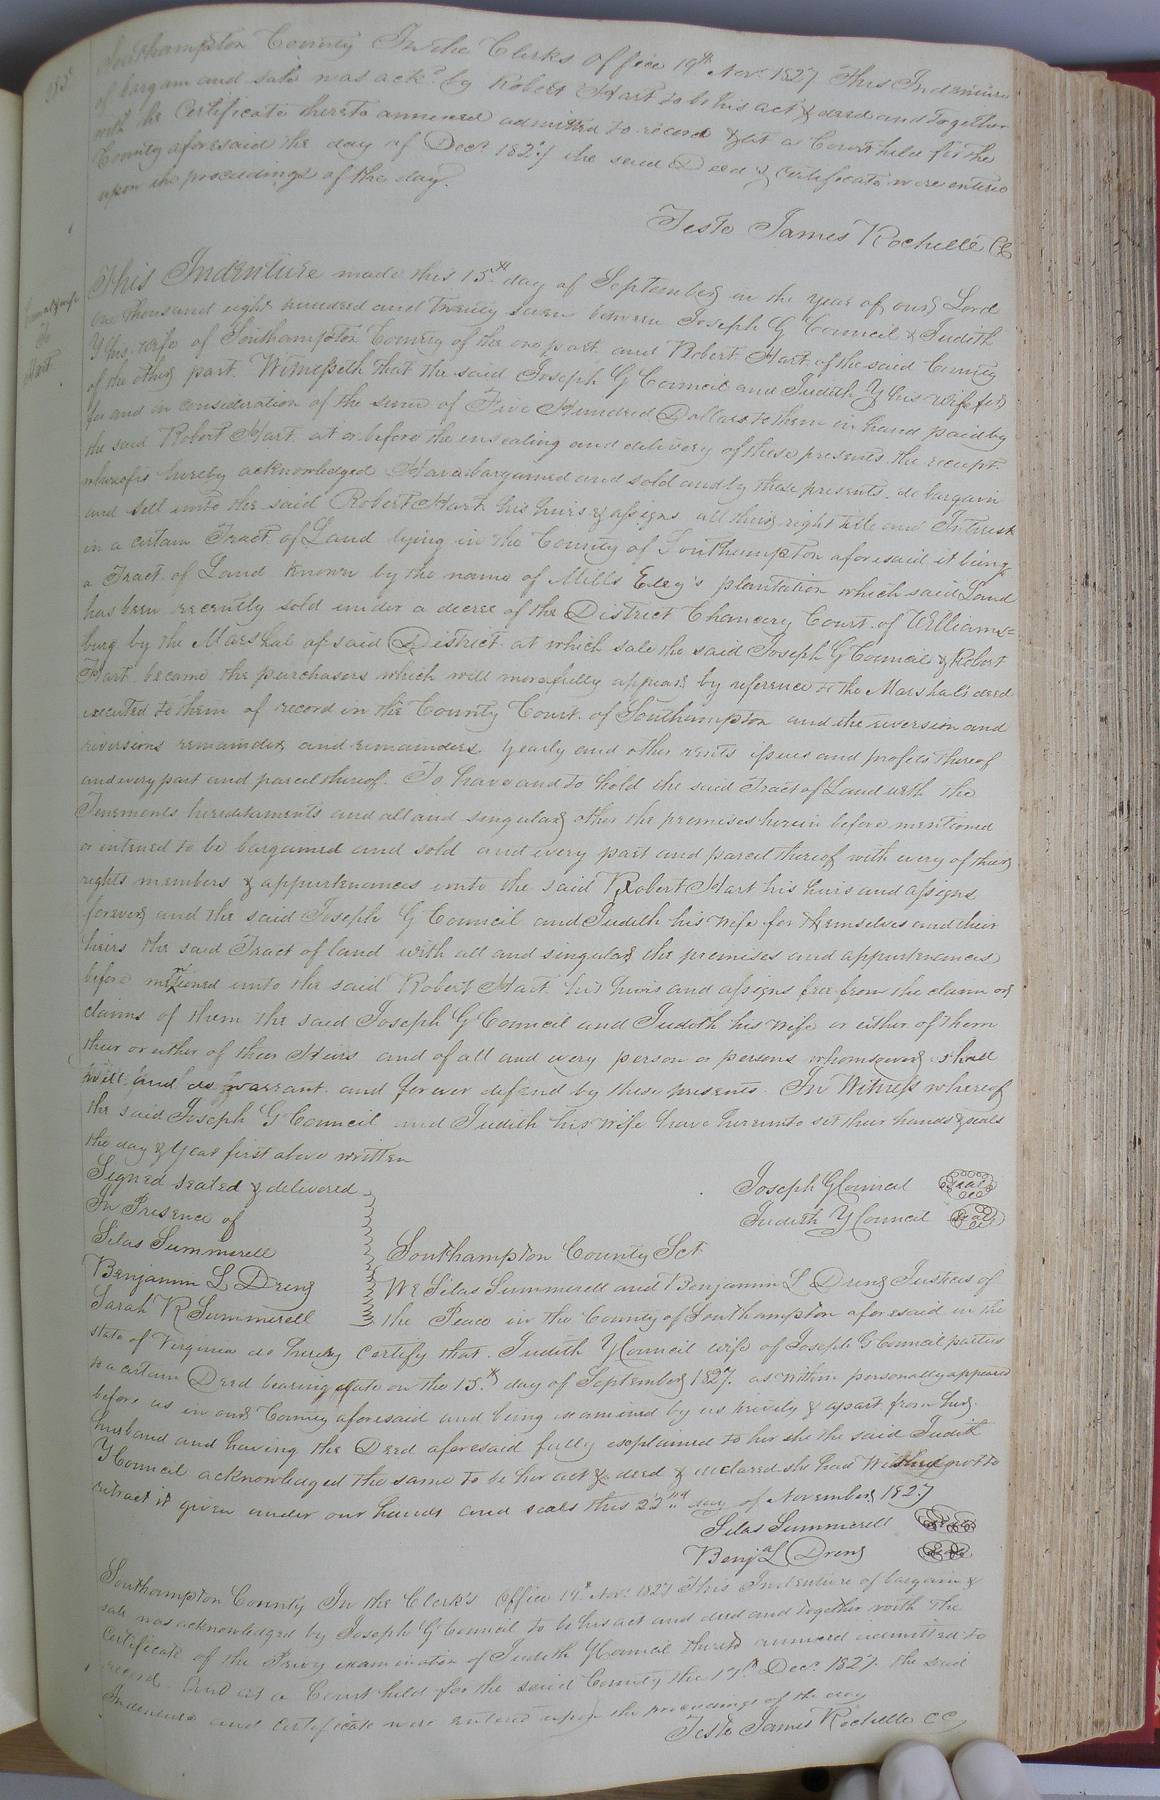 Southampton County In the Clerks Office 19th Nov. 1827 This Indenture
of bargain and sale was ackd. by Robert Hart to be his act & deed and together
with the Certificate thereto annexed admitted to record & at a Court held for the
County aforesaid the day of Decr. 1827 the said Deed & certificate were entered
upon the proceedings of the day.
Teste James Rochelle CC
Council & wife
To
Hart
This Indenture made this 15th day of September in the year of our Lord
one thousand eight hundred and twenty seven between Joseph G Council & Judith
Y his wife of Southampton County of the one part and Robert Hart of the said County
of the other part. Witnesseth that the said Joseph G Council and Judith Y his wife for
for and in consideration of the sum of Five Hundred Dollars to them in hand paid by
the said Robert Hart at or before the ensealing and delivery of these presents the receipt
whereof is hereby acknowledged Have bargained and sold and by these presents do bargain
and sell unto the said Robert Hart his heirs & assigns all their right title and Interest
in a certain Tract of Land lying in the County of Southampton aforesaid it being
a Tract of Land known by the name of Mills Eley's plantation which said Land
has been recently sold under a decree of the District Chancery Court of Williams=
burg by the Marshal of said District at which sale the said Joseph G Council & Robert
Hart became the purchasers which will more fully appear by reference to the Marshals deed
executed to them of record in the County Court of Southampton and the reversion and
reversions remainder and remainders yearly and other rents issues and profits thereof
and every part and parcel thereof. To have and to hold the said Tract of Land with the
Tenements hereditaments and all and singular other the premises herein before mentioned
or intened to be bargained and sold and every part and parcel thereof with every of their
rights members & appurtenances unto the said Robert Hart his heirs and assigns
forever and the said Joseph G Council and Judith his wife for themselves and their
heirs the said Tract of land with all and singular the premises and appurtenances
before mentioned unto the said Robert Hart his heirs and assigns free from the claim or
claims of them the said Joseph G Council and Judith his wife or either of them
their or either of their Heirs and of all and every person or persons whomsoever shall
will and do warrant and forever defend by these presents. In Witness whereof
the said Joseph G Council and Judith his wife have hereunto set their hands & seals
the day & year first above written
Signed sealed & delivered
In Presence of
Silas Summerell
Benjamin L Drew
Sarah R Summerell
Joseph G Council Seal
Judith Y Council Seal
Southampton County Sct
We Silas Summerell and Benjamin L Drew Justices of
the Peace in the County of Southampton aforesaid in the
state of Virginia do hereby certify that Judith Y Council wife of Joseph G Council parties
to a certain Deed bearing date on the 15th day of September 1827. as within personally appeared
before us in our County aforesaid and being examined by us privily & apart from her
husband and having the Deed aforesaid fully explained to her she the said Judith
Y Council acknowledged the same to be her act & deed & declared she had Wished not to
retract it given under our hands and seals this 22nd day of November 1827
Silas Summerell Seal
Benja L Drew Seal
Southampton County In the Clerk's Office 19th Nov. 1827 This Indenture of bargain &
sale was acknowledged by Joseph G Council to be his act and deed and together with the
Certificate of the Privy examination of Judith Y Council thereto annexed admitted to
record. And at a Court held for the said County the 17th Decr. 1827. the said
Indenture and certificate were entered upon the proceedings of the day
Teste James Rochelle CC